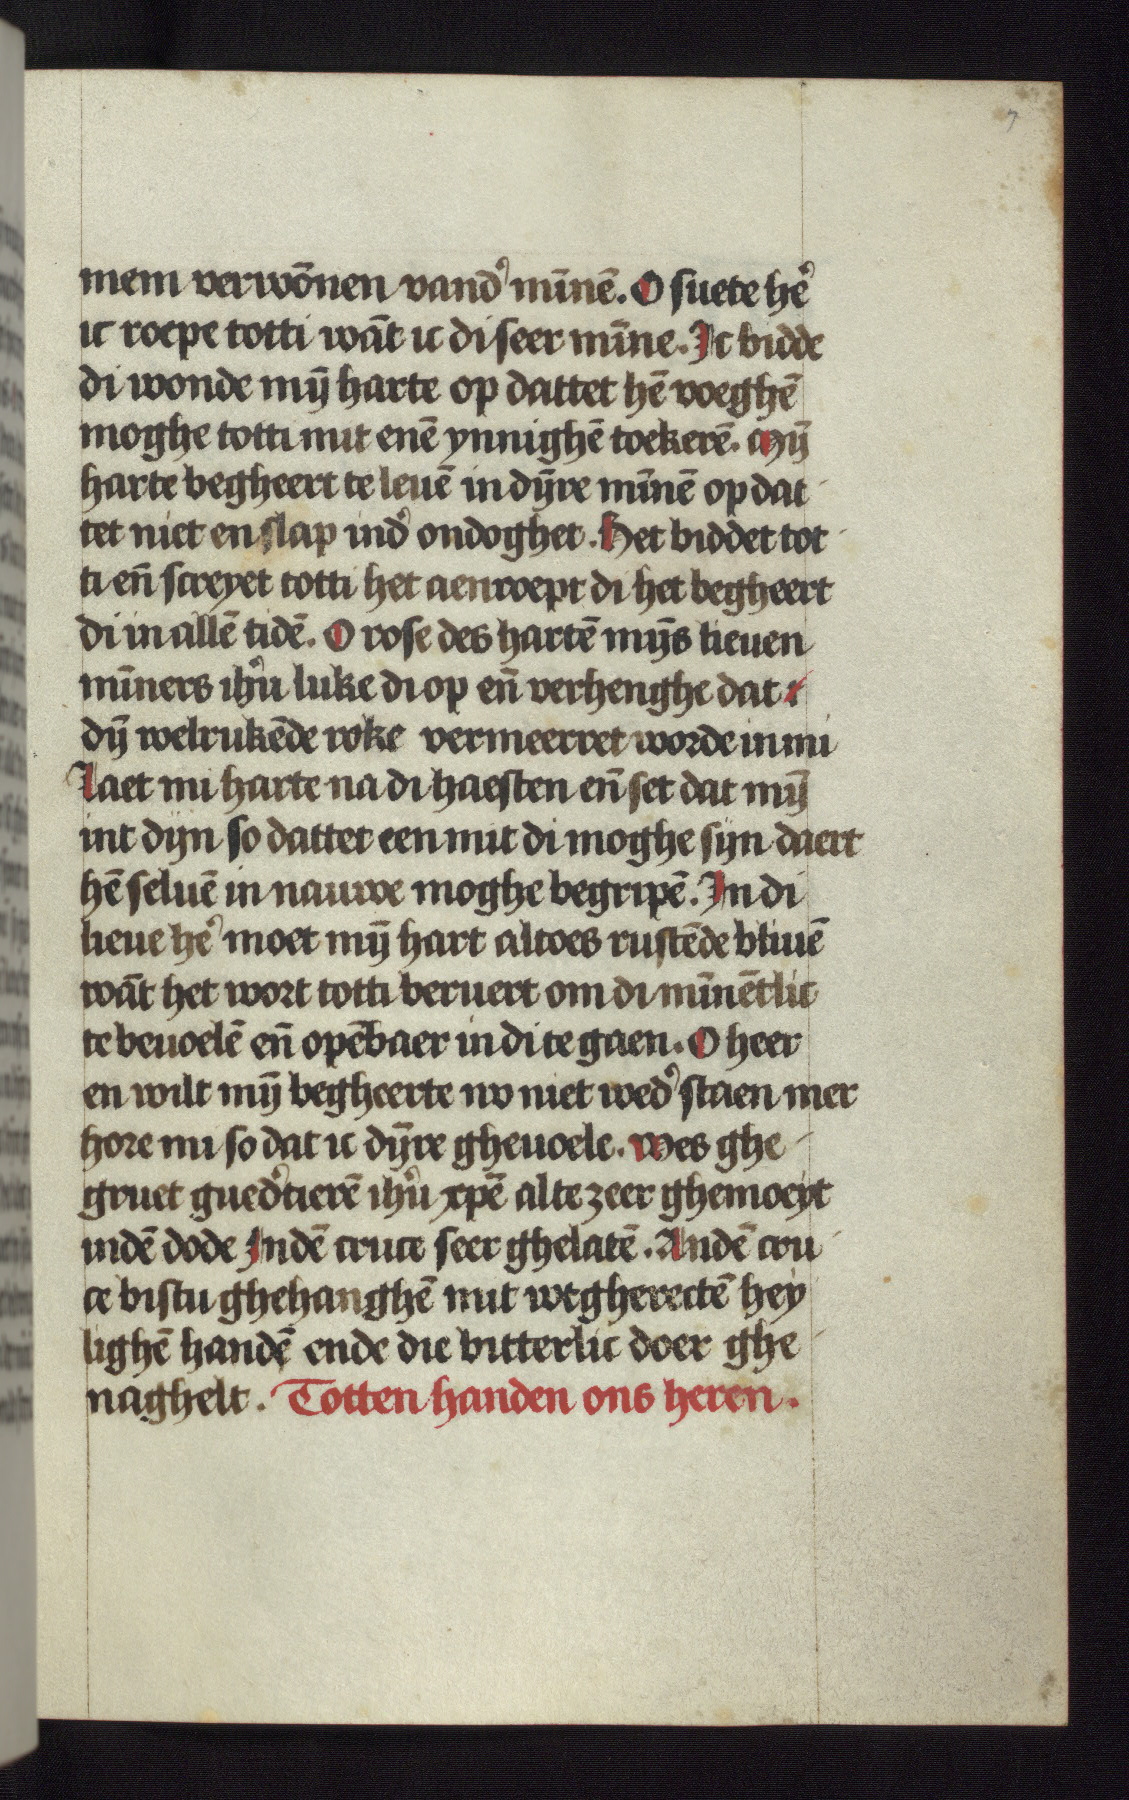 7
mem verwōnen vand᾽ mīnē. O suete hē᾽
ic roepe totti wāt ic di seer mīne. Ic bidde
di wonde mȳ harte op dattet hē voeghē
moghe totti mit enē ynnighē toekerē. Mȳ
harte begheert te leuē in dȳre mīnē op dat
tet niet en slap ind᾽ ondoghet. Het biddet tot
ti en̄ screyet totti het aenroept di het begheert
di in allē tidē. O rose des hartē mȳs lieuen
mīners ihū᾽ luke di op en̄ verhenghe dat
dȳ welrukēde roke vermeerret worde in mi
Laet mi harte na di haesten en̄ set dat mȳ
int dyn so dattet een mit di moghe syn daert
hē seluē in nauwe moghe begripē. In di
lieue hē᾽ moet mȳ hart altoes rustēde bliuē
wāt het wort totti beruert om di mīnētlic
te beuoelē en̄ opēbaer in di te gaen. O heer
en wilt mȳ begheerte nv niet wed᾽ staen mer
hore mi so dat ic dȳre gheuoele. Wes ghe
gruet gued᾽tierē ihū᾽ xpē alte zeer ghemoeyt
indē dode Indē cruce seer ghelatē. Andē cru
ce bistu ghehanghē mit wtgherectē hey
lighē handē ende die bitterlic doer ghe
naghelt. Totten handen ons heren.